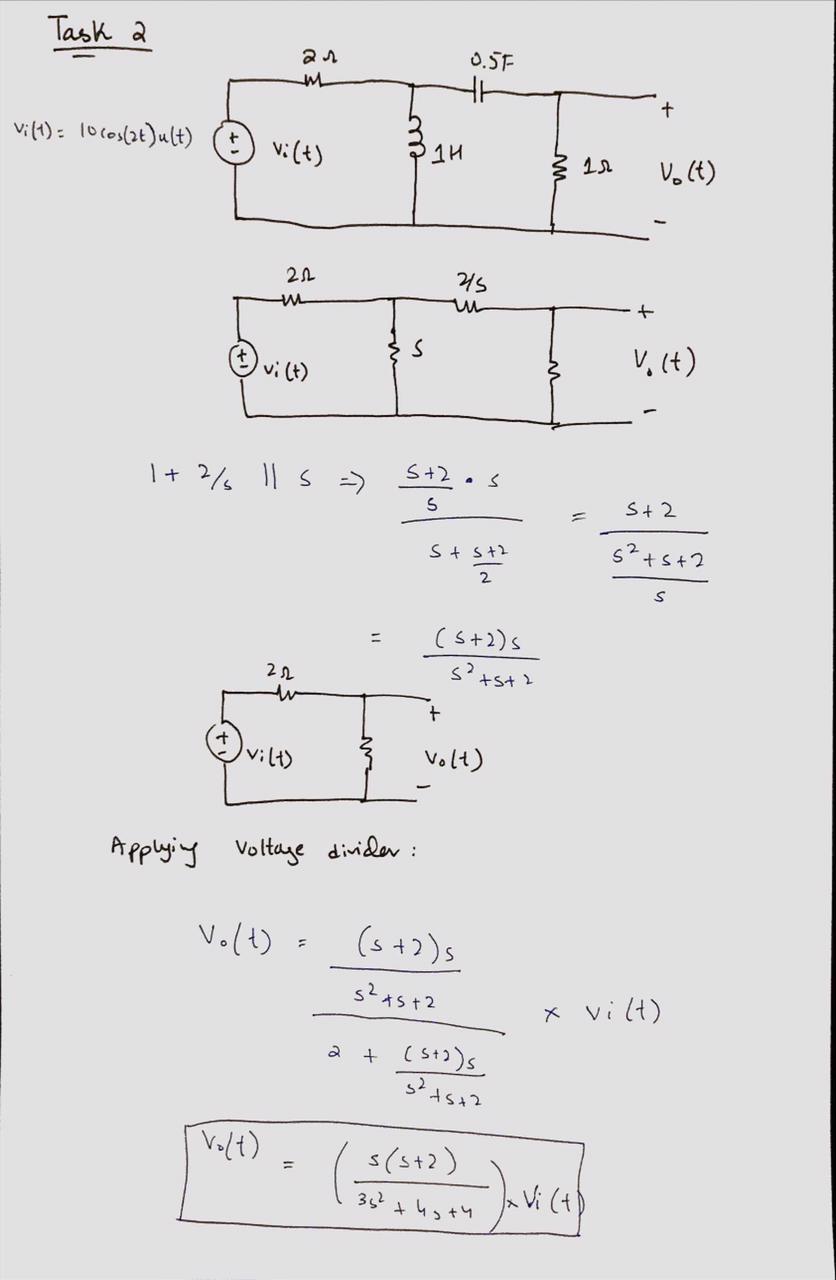 Task 2
2Ω
0.5F
+
Vi(t) = 10cos(2t)u(t)
+
-
Vi(t)
1H
1Ω
Vo(t)
-
2Ω
2/s
+
+
-
Vi(t)
s
Vo(t)
-
1 + 2/s || s ⇒ (s+2)/s · s / (s + (s+2)/2) = (s+2) / ((s²+s+2)/s)
= (s+2)s / (s²+s+2)
2Ω
+
+
-
Vi(t)
Vo(t)
-
Applying Voltage divider :
Vo(t) = ((s+2)s / (s²+s+2)) / (2 + (s+2)s / (s²+s+2)) × Vi(t)
Vo(t) = (s(s+2) / (3s² + 4s + 4)) × Vi(t)